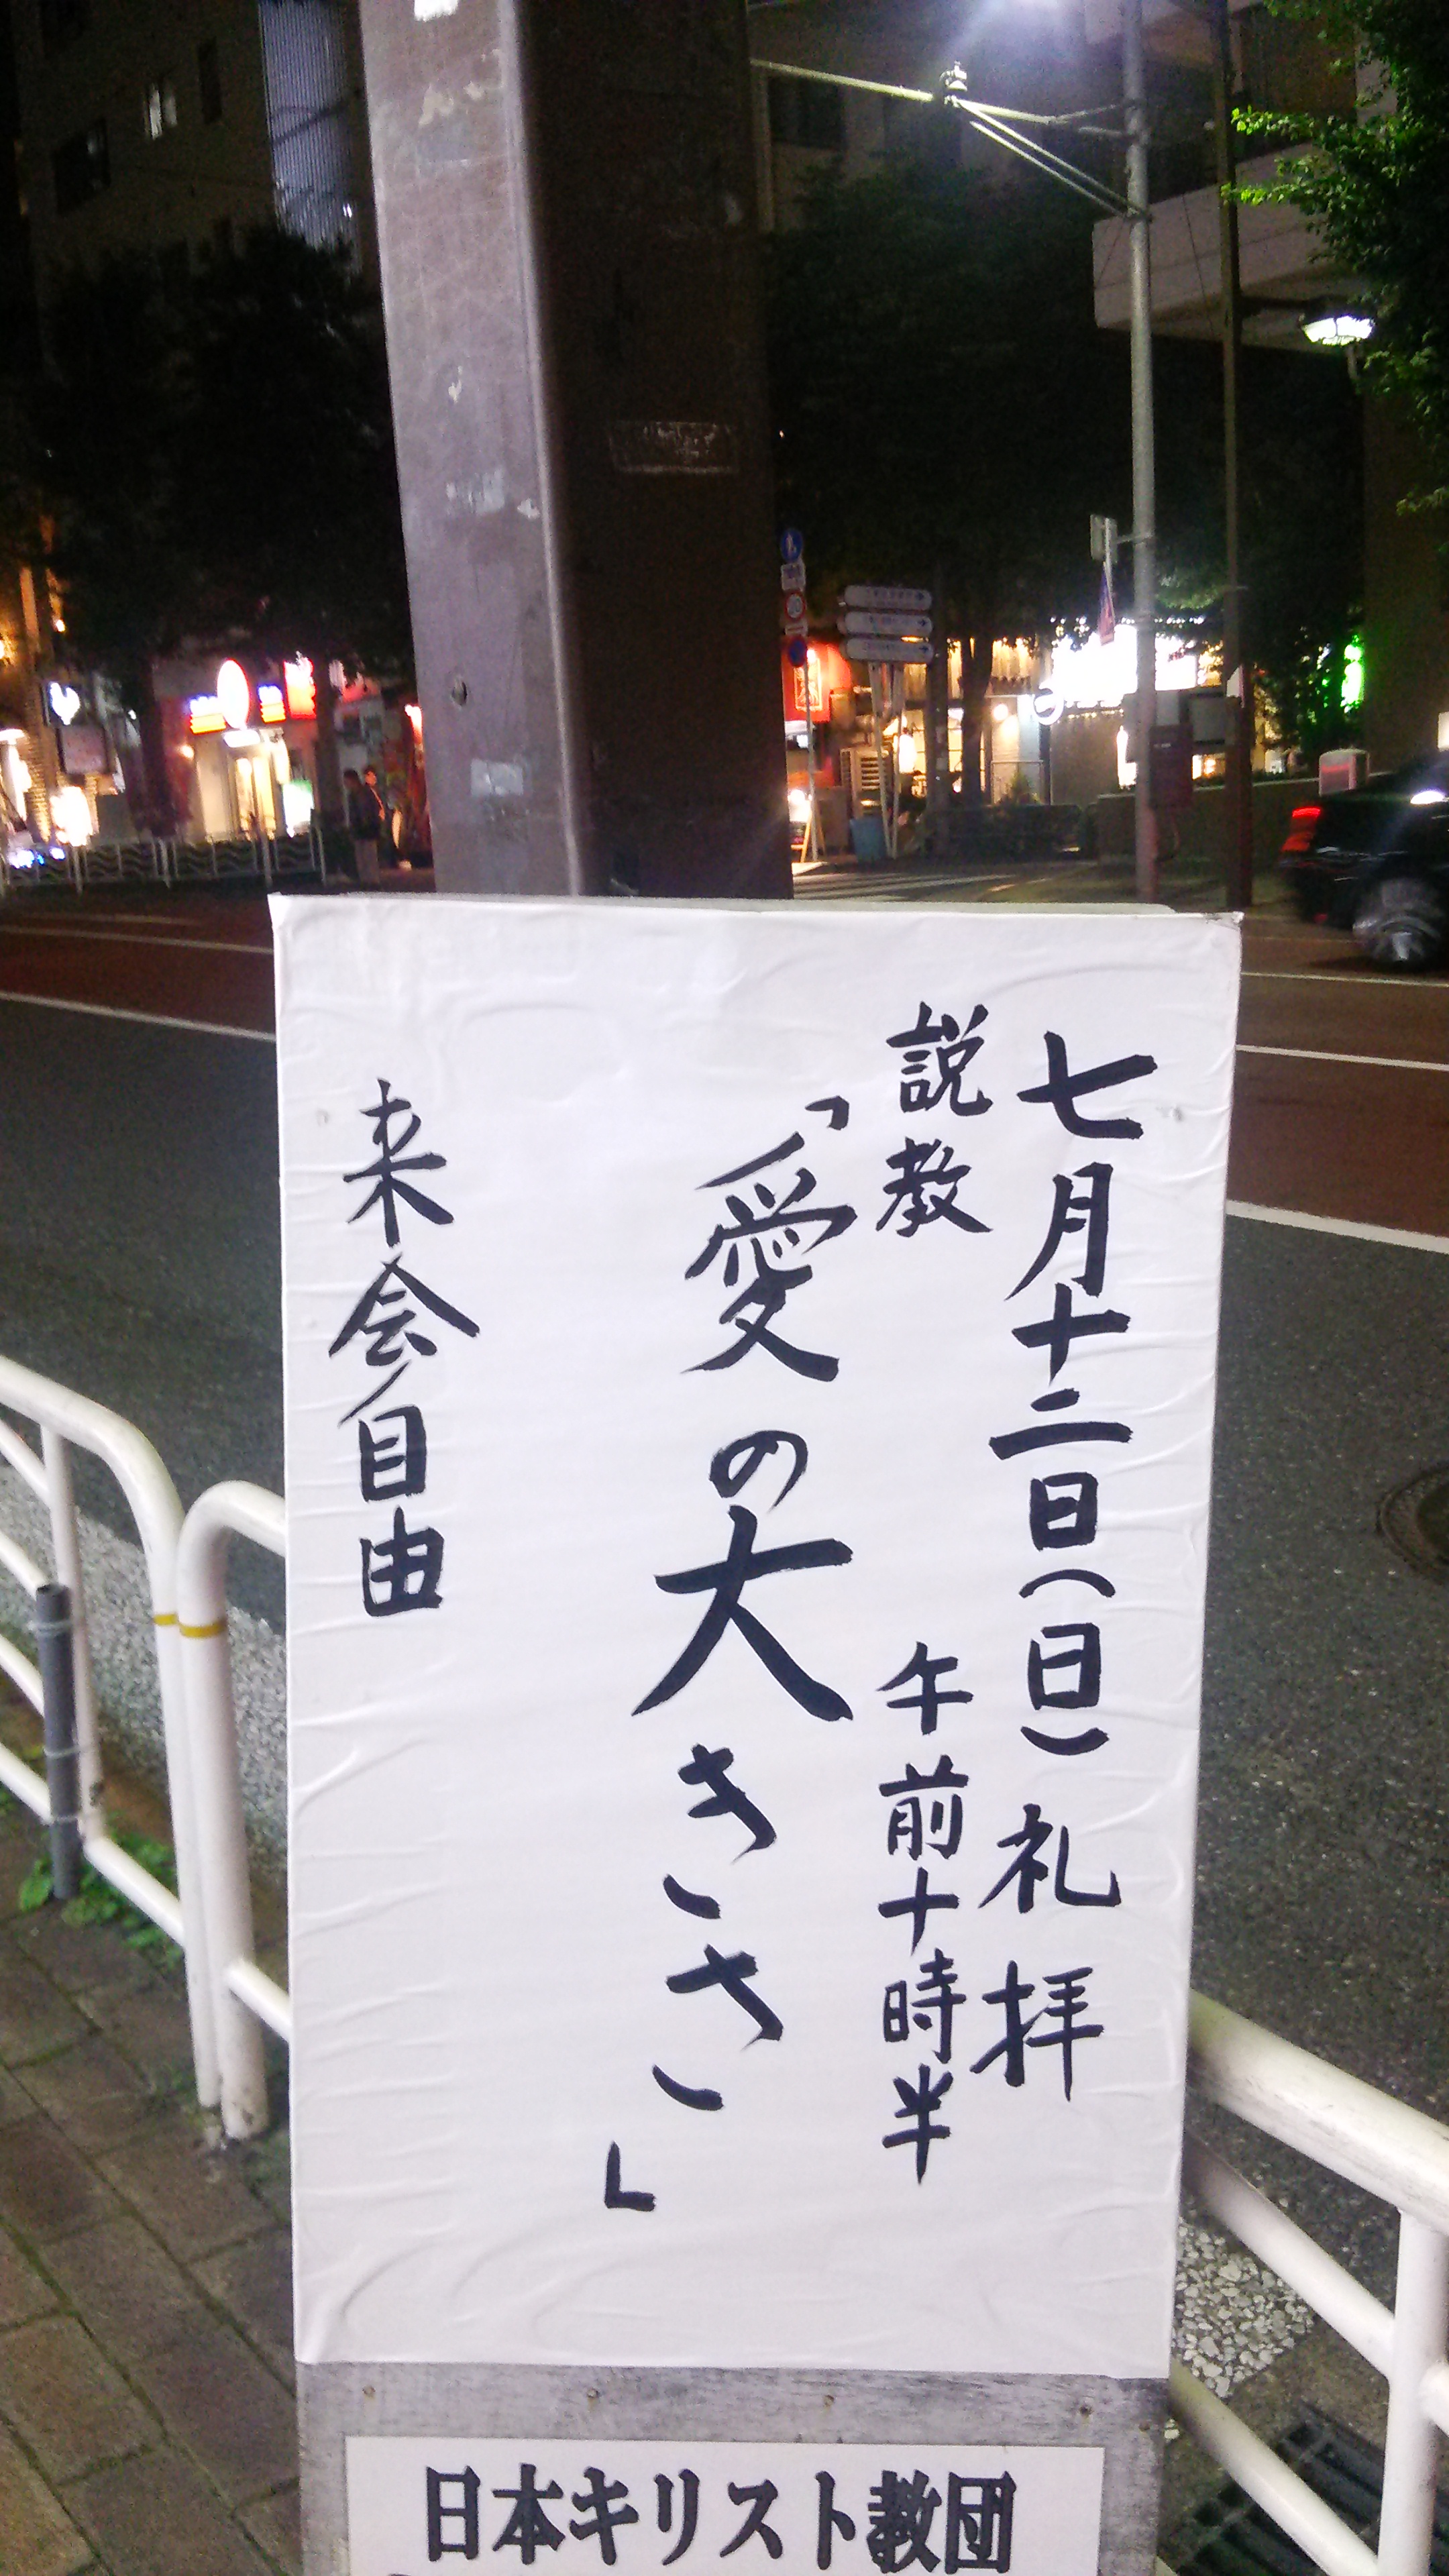 七月十二日(日)礼拝
説教 午前十時半
「愛の大きさ」
来会自由
日本キリスト教団